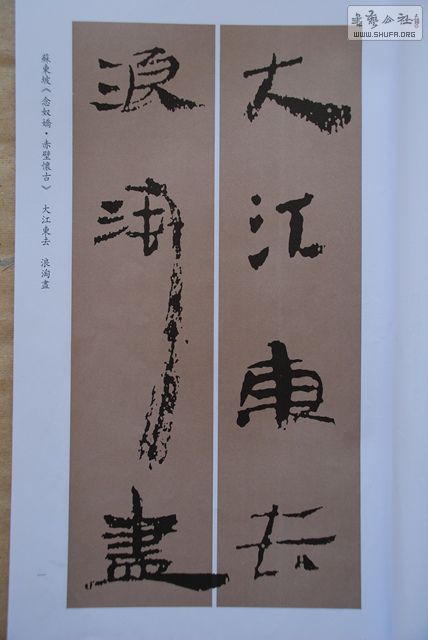 大江東去
浪淘盡
蘇東坡《念奴嬌·赤壁懷古》 大江東去 浪淘盡
一
WWW.SHUFA.ORG